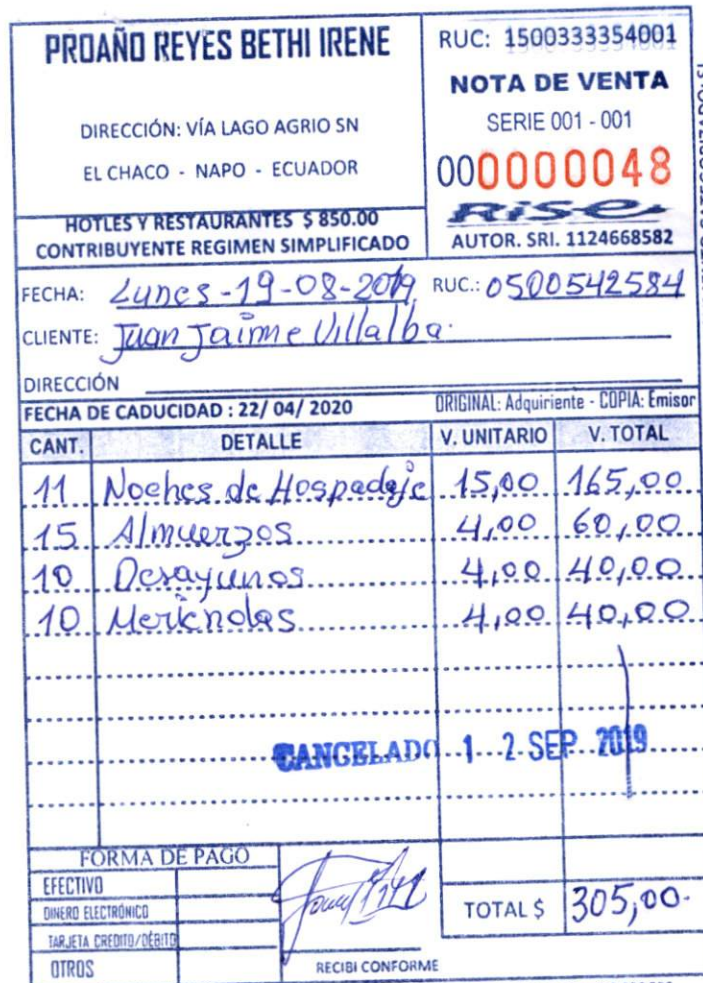 PROAÑO REYES BETHI IRENE
DIRECCIÓN: VÍA LAGO AGRIO SN
EL CHACO - NAPO - ECUADOR
HOTLES Y RESTAURANTES $ 850.00
CONTRIBUYENTE REGIMEN SIMPLIFICADO
RUC: 1500333354001
NOTA DE VENTA
SERIE 001 - 001
000000048
RISE
AUTOR. SRI. 1124668582
FECHA: Lunes-19-08-2019 RUC.: 0500542584
CLIENTE: Juan Jaime Villalba.
DIRECCIÓN
FECHA DE CADUCIDAD : 22/ 04/ 2020 ORIGINAL: Adquiriente - COPIA: Emisor
CANT. DETALLE V. UNITARIO V. TOTAL
11 Noches de Hospedaje 15,00 165,00
15 Almuerzos 4,00 60,00
10 Desayunos 4,00 40,00
10 Meriendas 4,00 40,00
CANCELADO 12 SEP 2019
FORMA DE PAGO
EFECTIVO
DINERO ELECTRÓNICO
TARJETA CREDITO/DÉBITO
OTROS
RECIBI CONFORME
TOTAL $ 305,00.